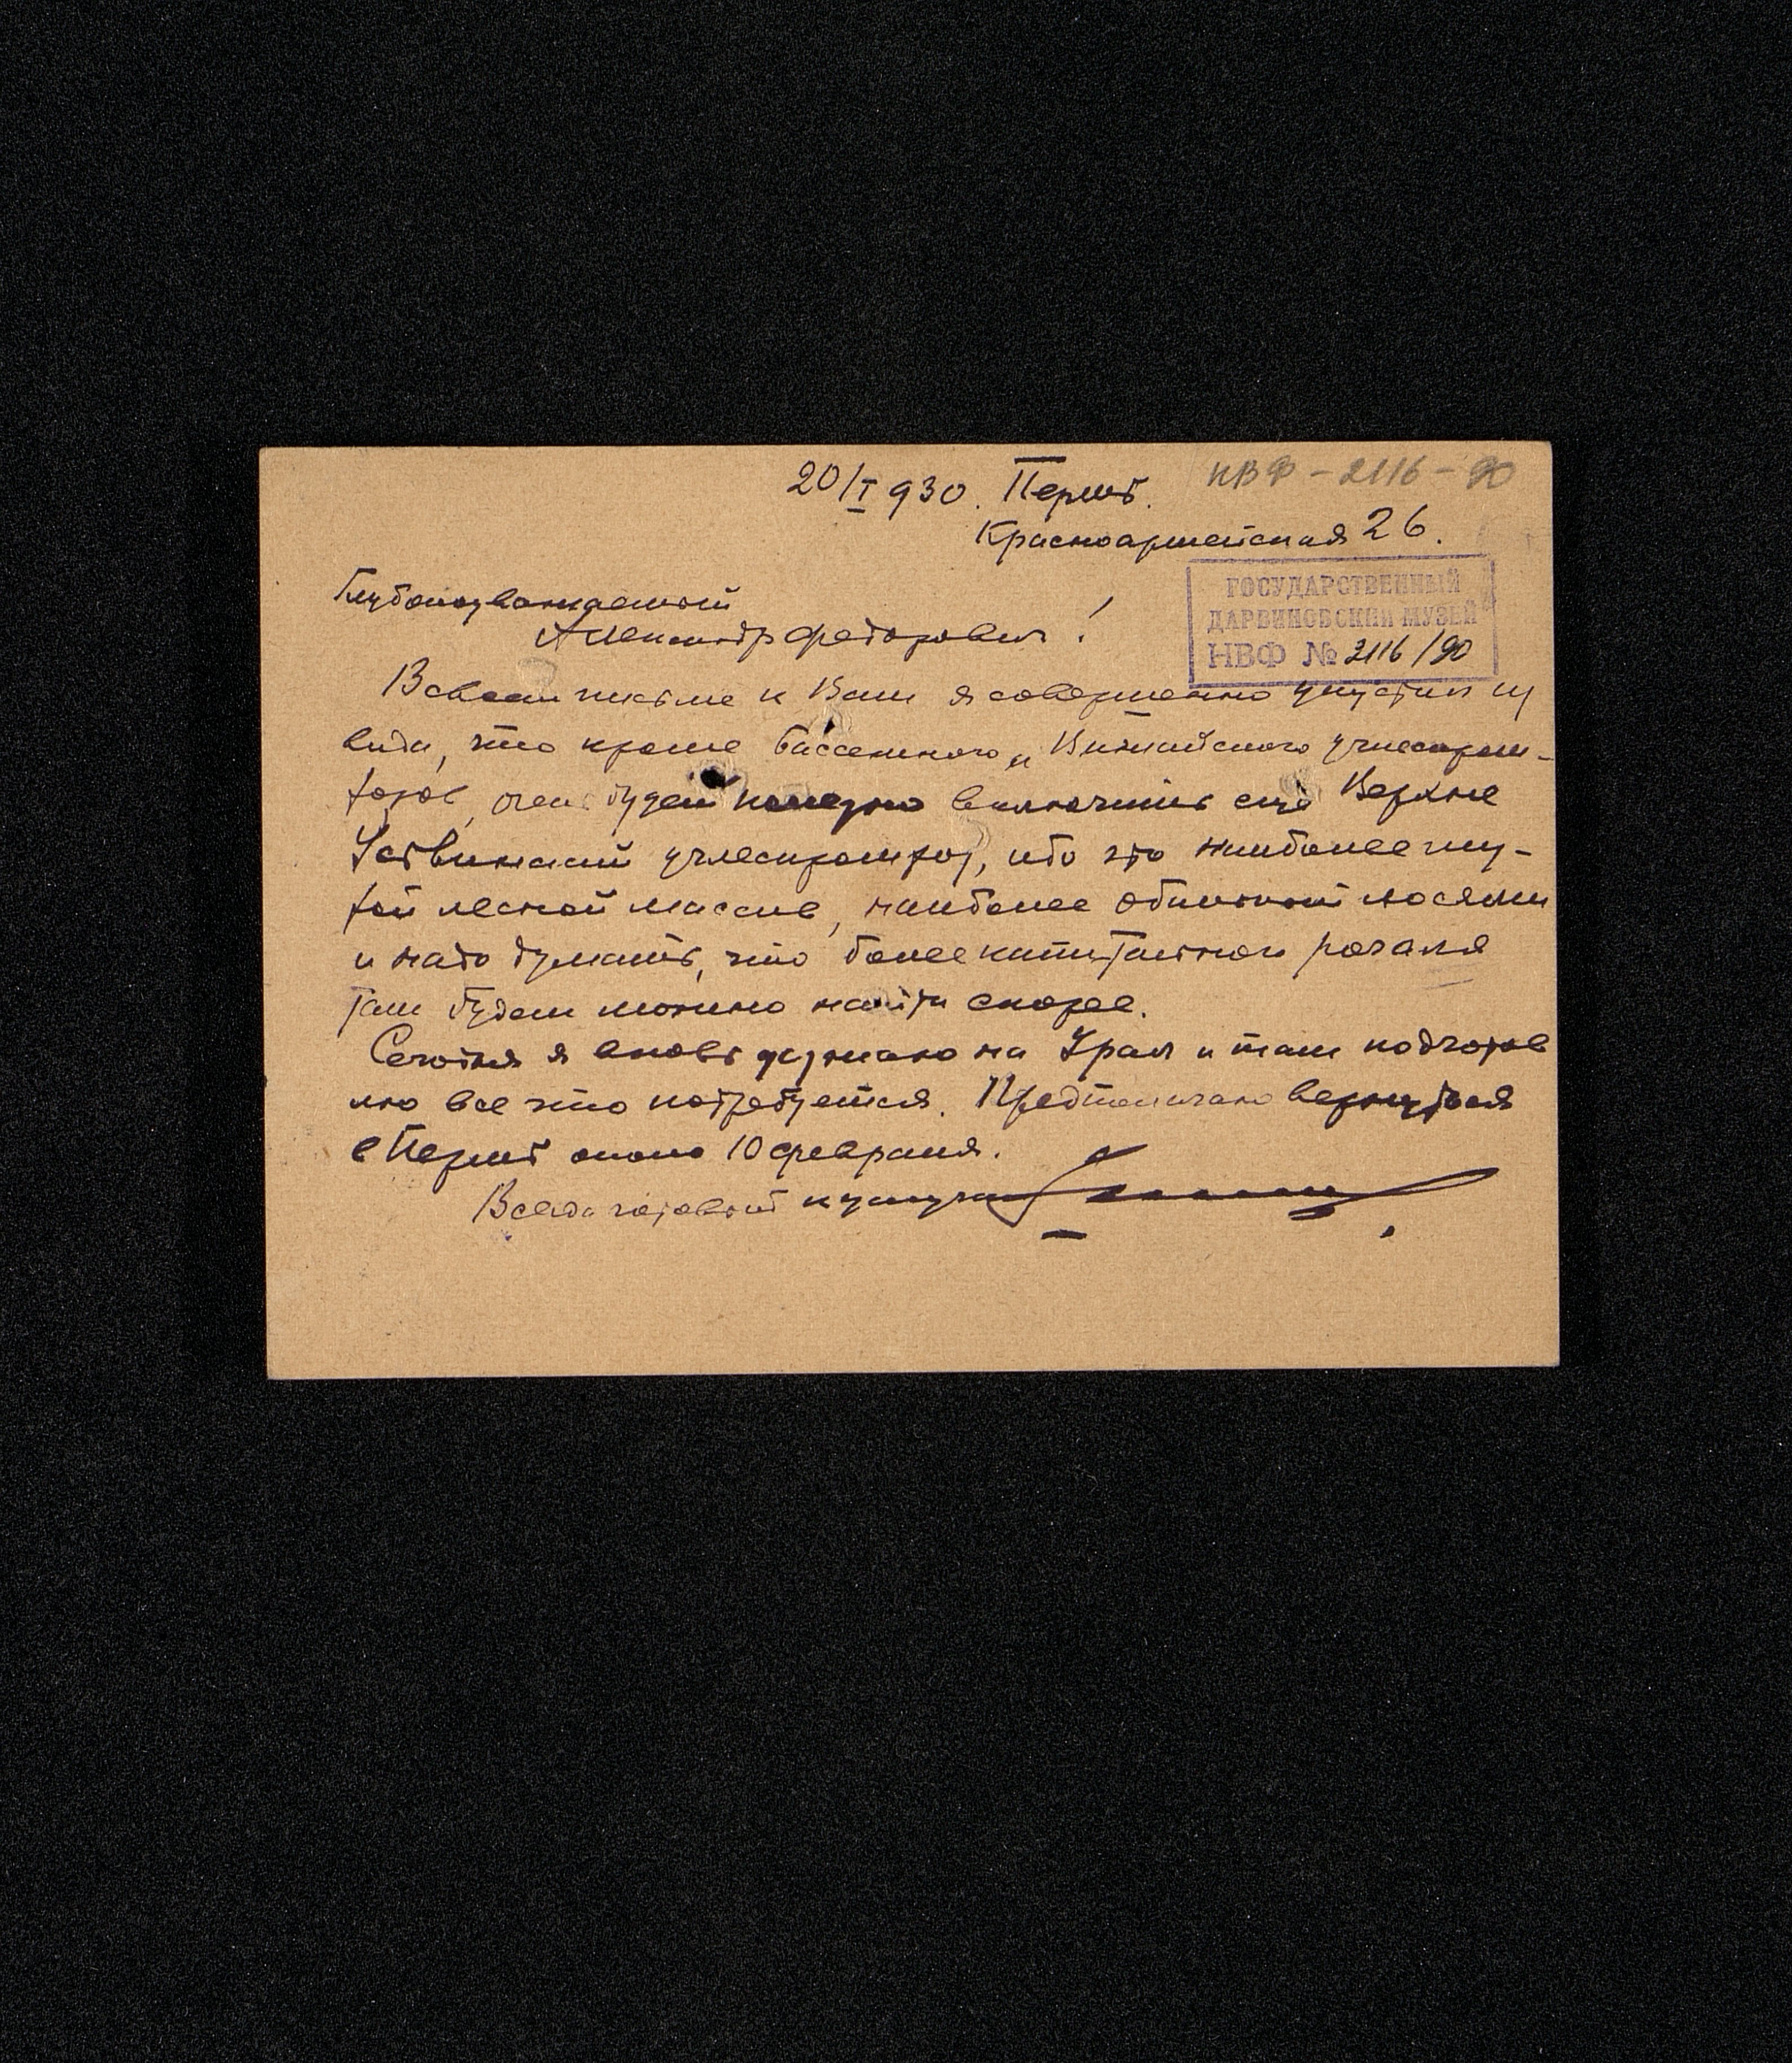 20/I 930. Пермь.
НВФ – 2116 – 90
Красноармейская 26.
ГОСУДАРСТВЕННЫЙ
ДАРВИНОВСКИЙ МУЗЕЙ
НВФ № 2116/90
Глубокоуважаемый
Александр Федорович!
В своем письме к Вам я совершенно упустил из
виду, что кроме и учлеспром-
хозов, очень будет полезно включить еще Верхне
Устьвинский учлеспромхоз, ибо это наиболее глу-
хой лесной массив, наиболее обильный лосями
и надо думать, что более капитального рогаля
там будет можно найти скорее.
Сегодня я вновь уезжаю на Урал и там подготов
лю все что потребуется. Предполагаю вернуться
в Пермь около 10 февраля.
Всегда готовый к услугам